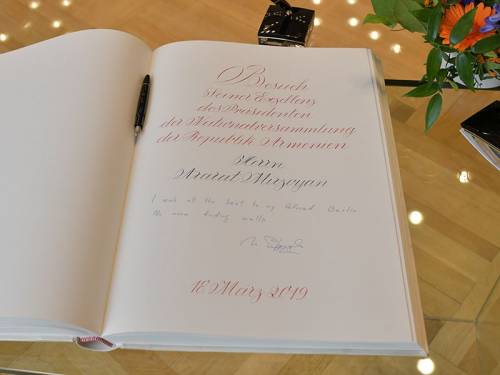 Besuch
Seiner Exzellenz
des Präsidenten
der Nationalversammlung
der Republik Armenien
Herrn
Ararat Mirzoyan
I wish all the best to my beloved Berlin
No more dividing walls
18. März 2019